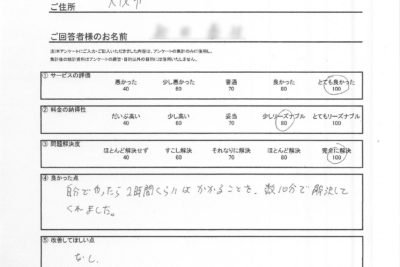 ご住所
ご回答者様のお名前
① サービスの評価 悪かった 少し悪かった 普通 良かった とても良かった
40 60 70 80 100
② 料金の納得性 だいぶ高い 少し高い 妥当 少しリーズナブル とてもリーズナブル
40 60 70 80 100
③ 問題解決度 ほとんど解決せず すこし解決 それなりに解決 ほとんど解決 完全に解決
40 60 70 80 100
④ 良かった点
自分でやったら2時間くらいはかかることを、数10分で解決して
くれました。
⑤ 改善してほしい点
なし